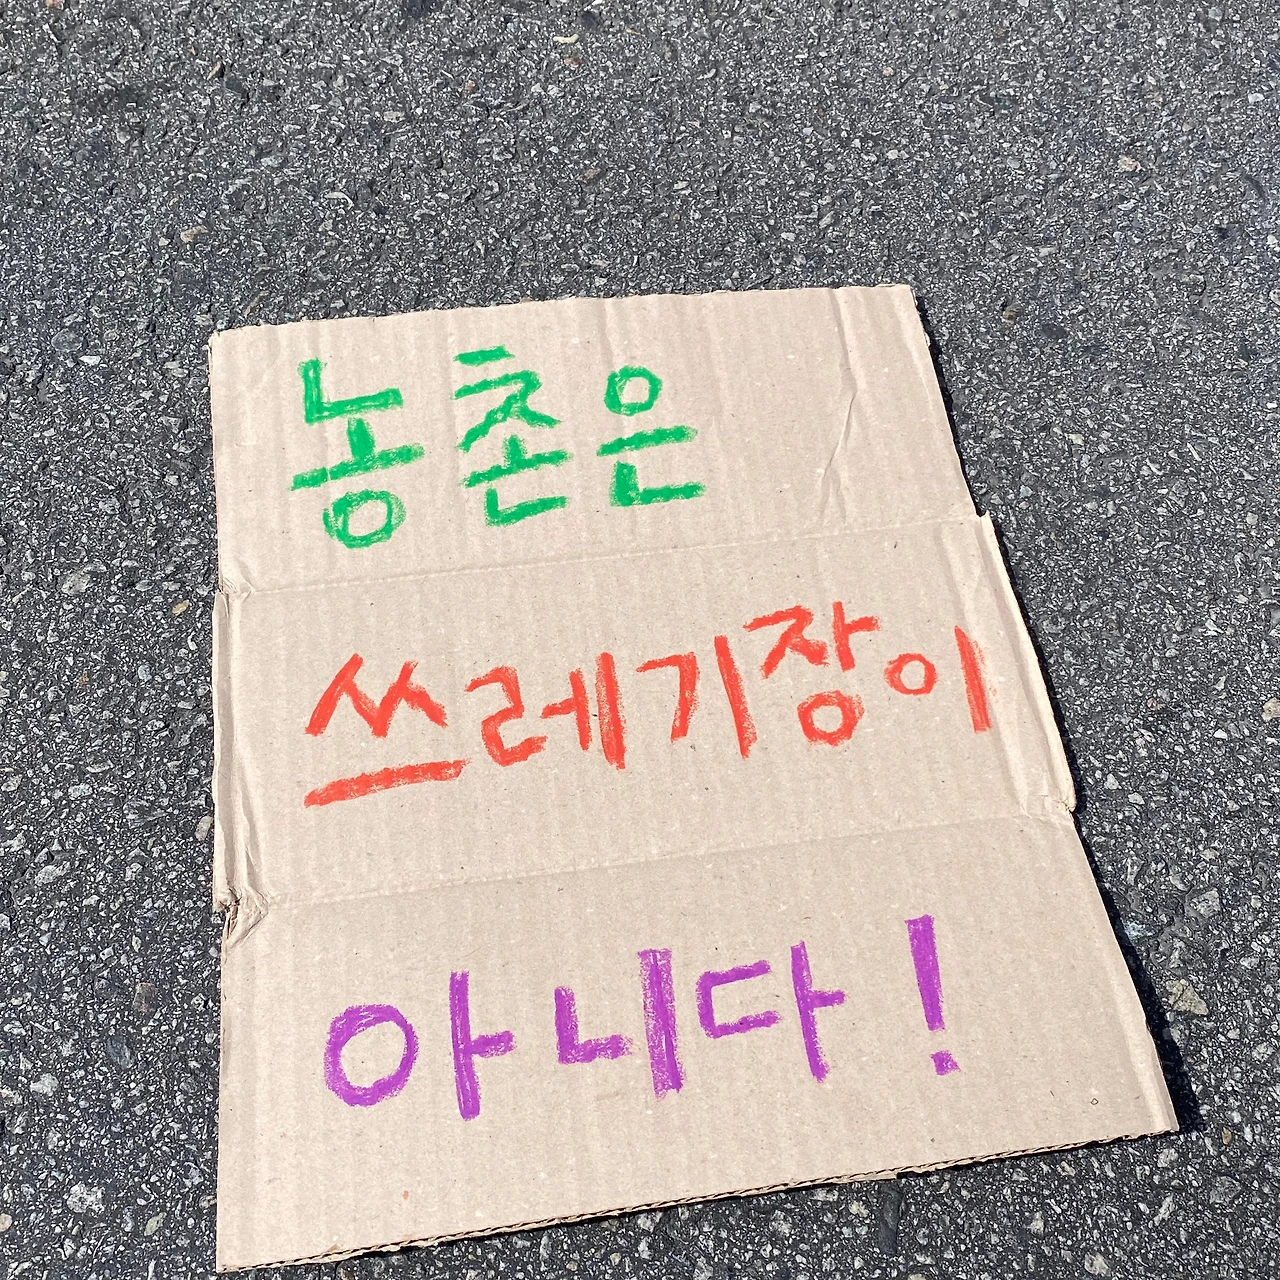 농촌은
쓰레기장이
아니다!